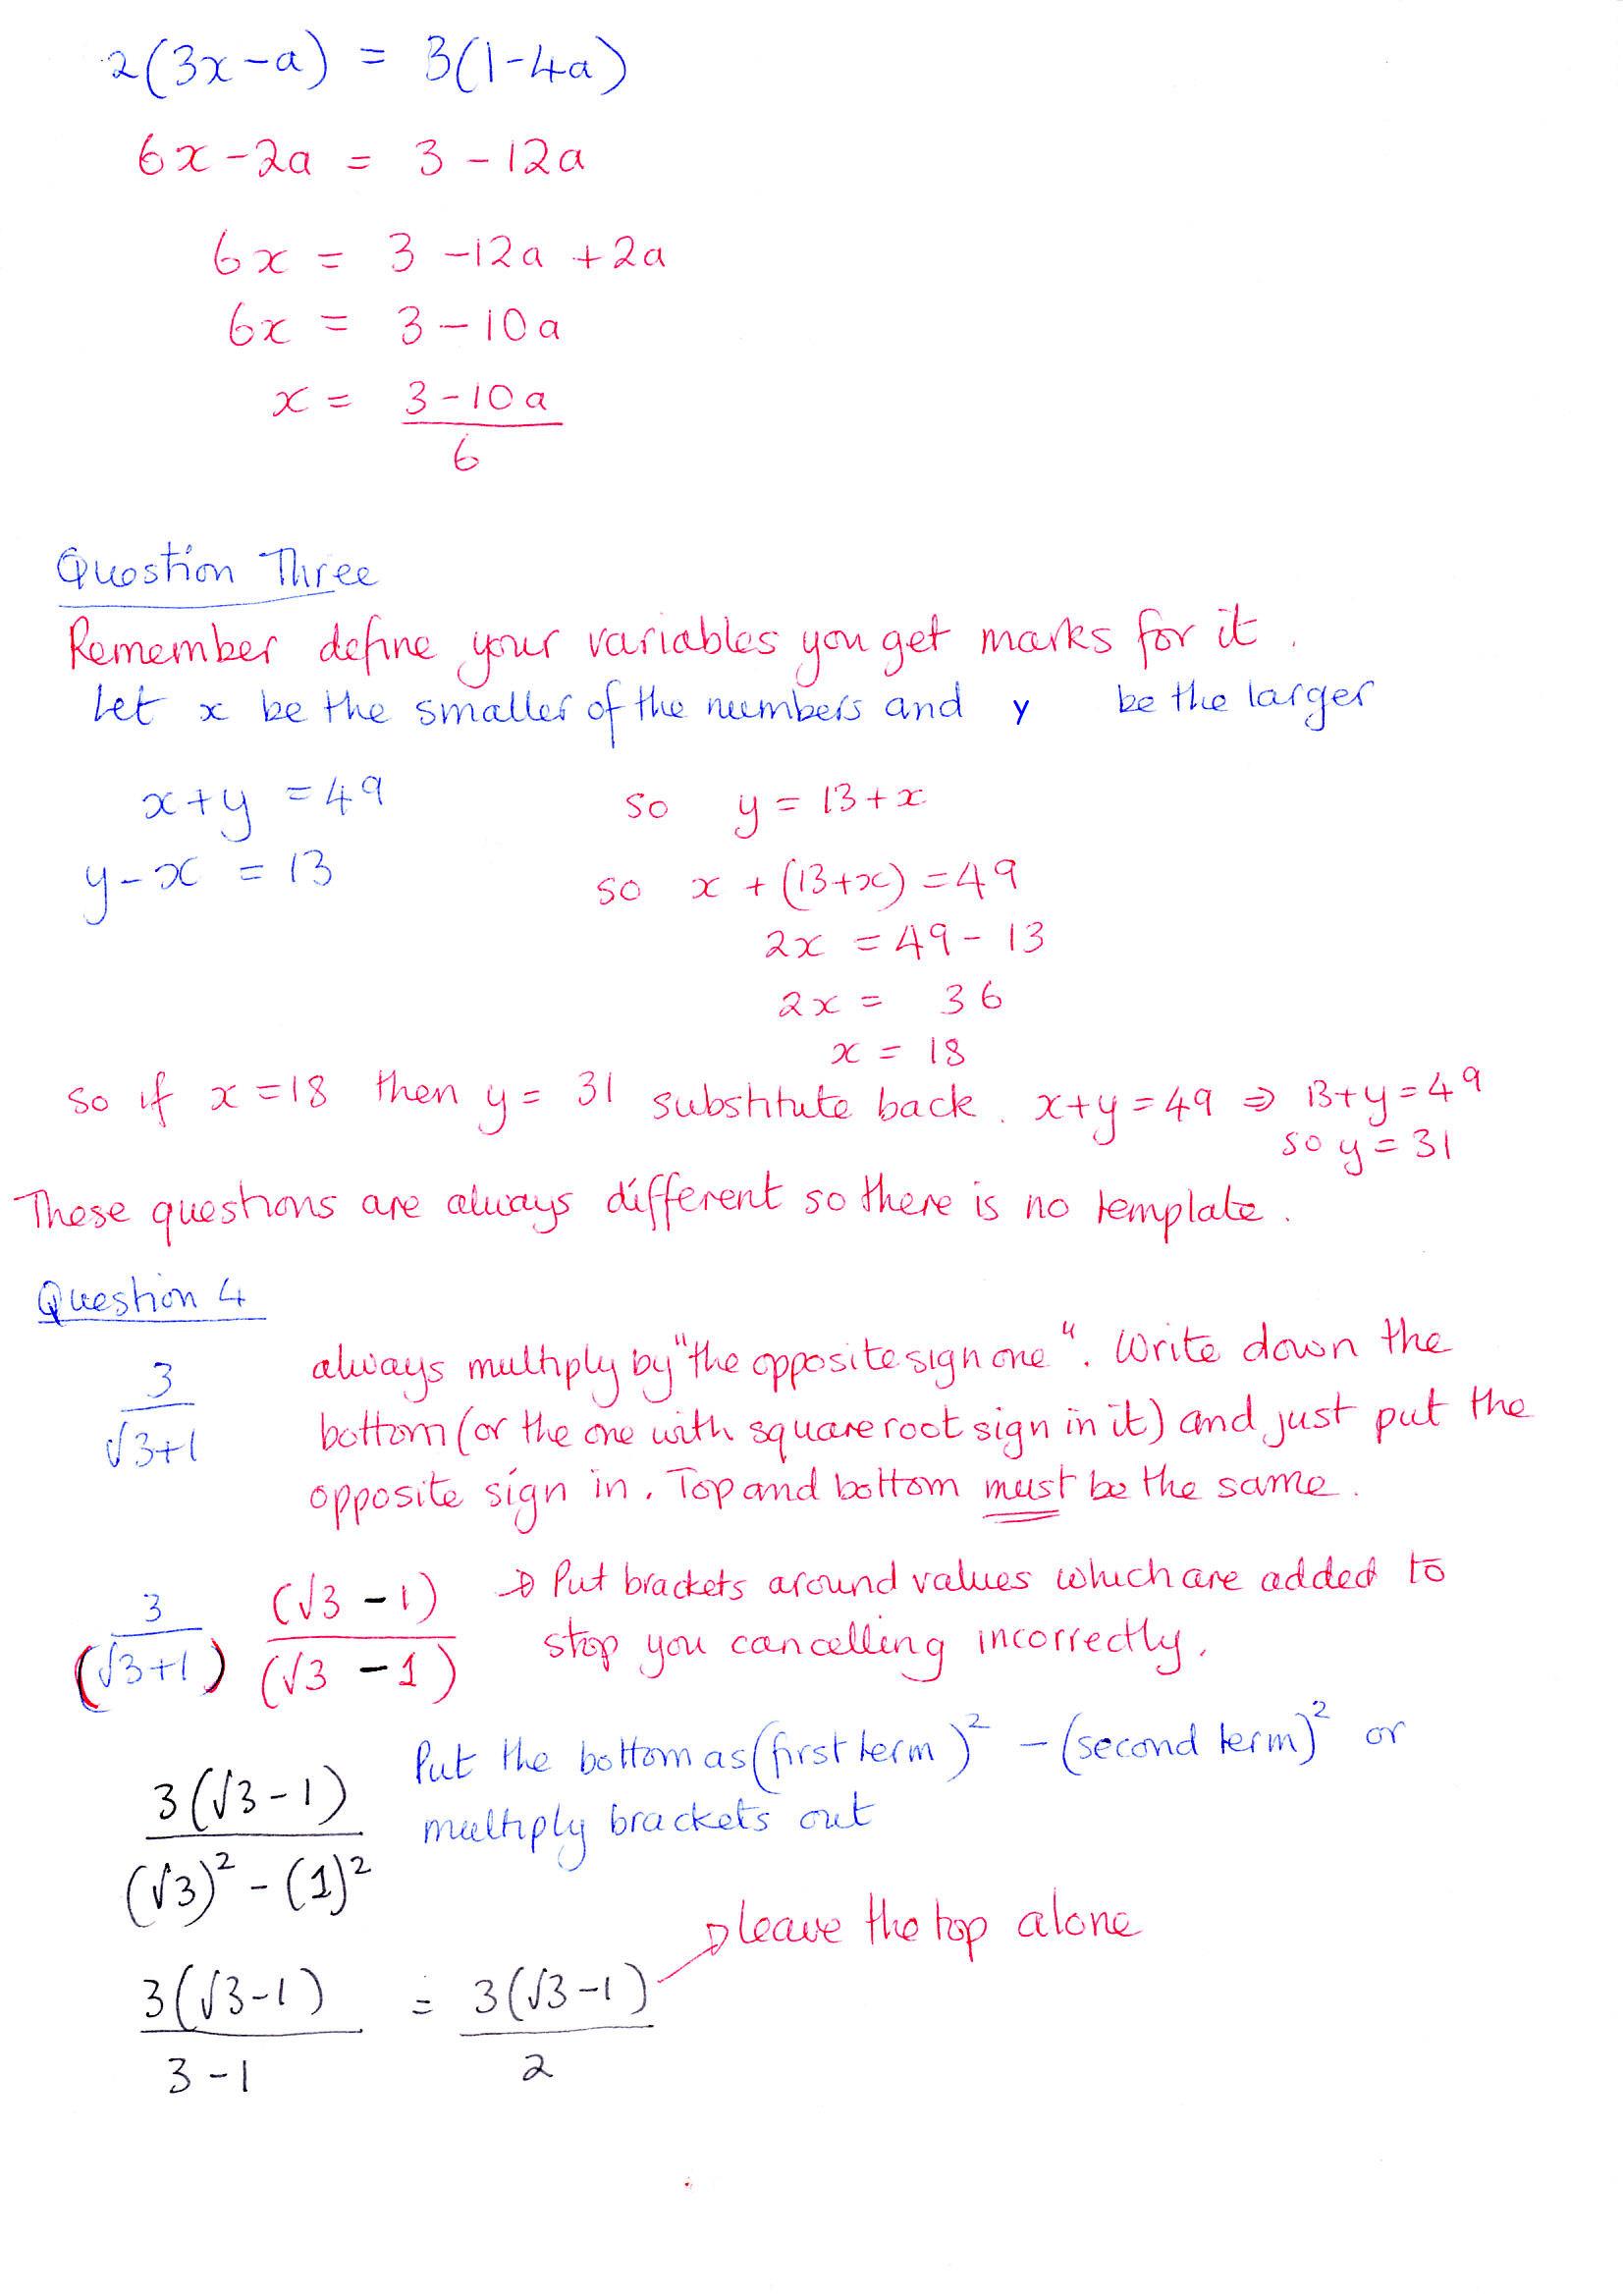 2(3x-a) = 3(1-4a)
6x-2a = 3-12a
6x = 3-12a+2a
6x = 3-10a
x = 3-10a
6
Question Three
Remember define your variables you get marks for it.
Let x be the smaller of the numbers and y be the larger
x+y = 49 so y = 13+x
y-x = 13 so x + (13+x) = 49
2x = 49-13
2x = 36
x = 18
so if x=18 then y= 31 substitute back. x+y=49 ⇒ 13+y=49
so y=31
These questions are always different so there is no template.
Question 4
3
√3+1
always multiply by "the opposite sign one". Write down the
bottom (or the one with square root sign in it) and just put the
opposite sign in. Top and bottom must be the same.
3 (√3-1) → Put brackets around values which are added to
(√3+1) (√3-1) stop you cancelling incorrectly.
Put the bottom as (first term)² - (second term)² or
multiply brackets out
3(√3-1)
(√3)² - (1)²
→ leave the top alone
3(√3-1) = 3(√3-1)
3-1 2